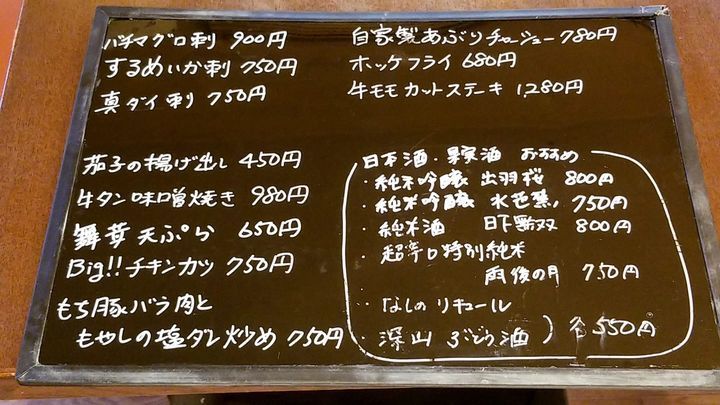 バチマグロ刺 900円
するめいか刺 750円
真ダイ刺 750円
茄子の揚げ出し 450円
牛タン味噌焼き 980円
舞茸天ぷら 650円
Big!! チキンカツ 750円
もち豚バラ肉と
もやしの塩ダレ炒め 750円
自家製あぶりチャーシュー 780円
ホッケフライ 680円
牛モモカットステーキ 1,280円
日本酒・果実酒 おすすめ
・純米吟醸 出羽桜 800円
・純米吟醸 水芭蕉 750円
・純米酒 日下無双 800円
・超辛口特別純米
雨後の月 750円
・なしのリキュール
・深山ぶどう酒 ) 各550円